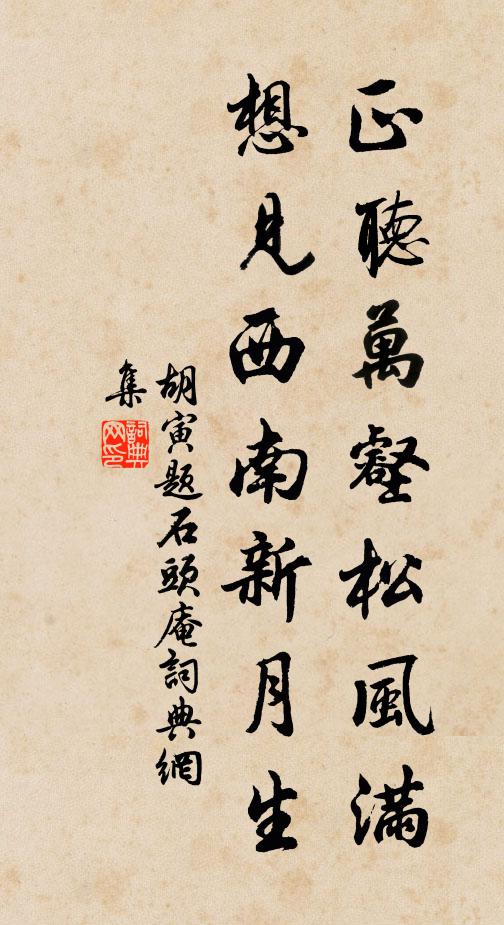 正聽萬壑松風滿
想見西南新月生
胡寅題石頭庵詞典網
集
詞典
网印